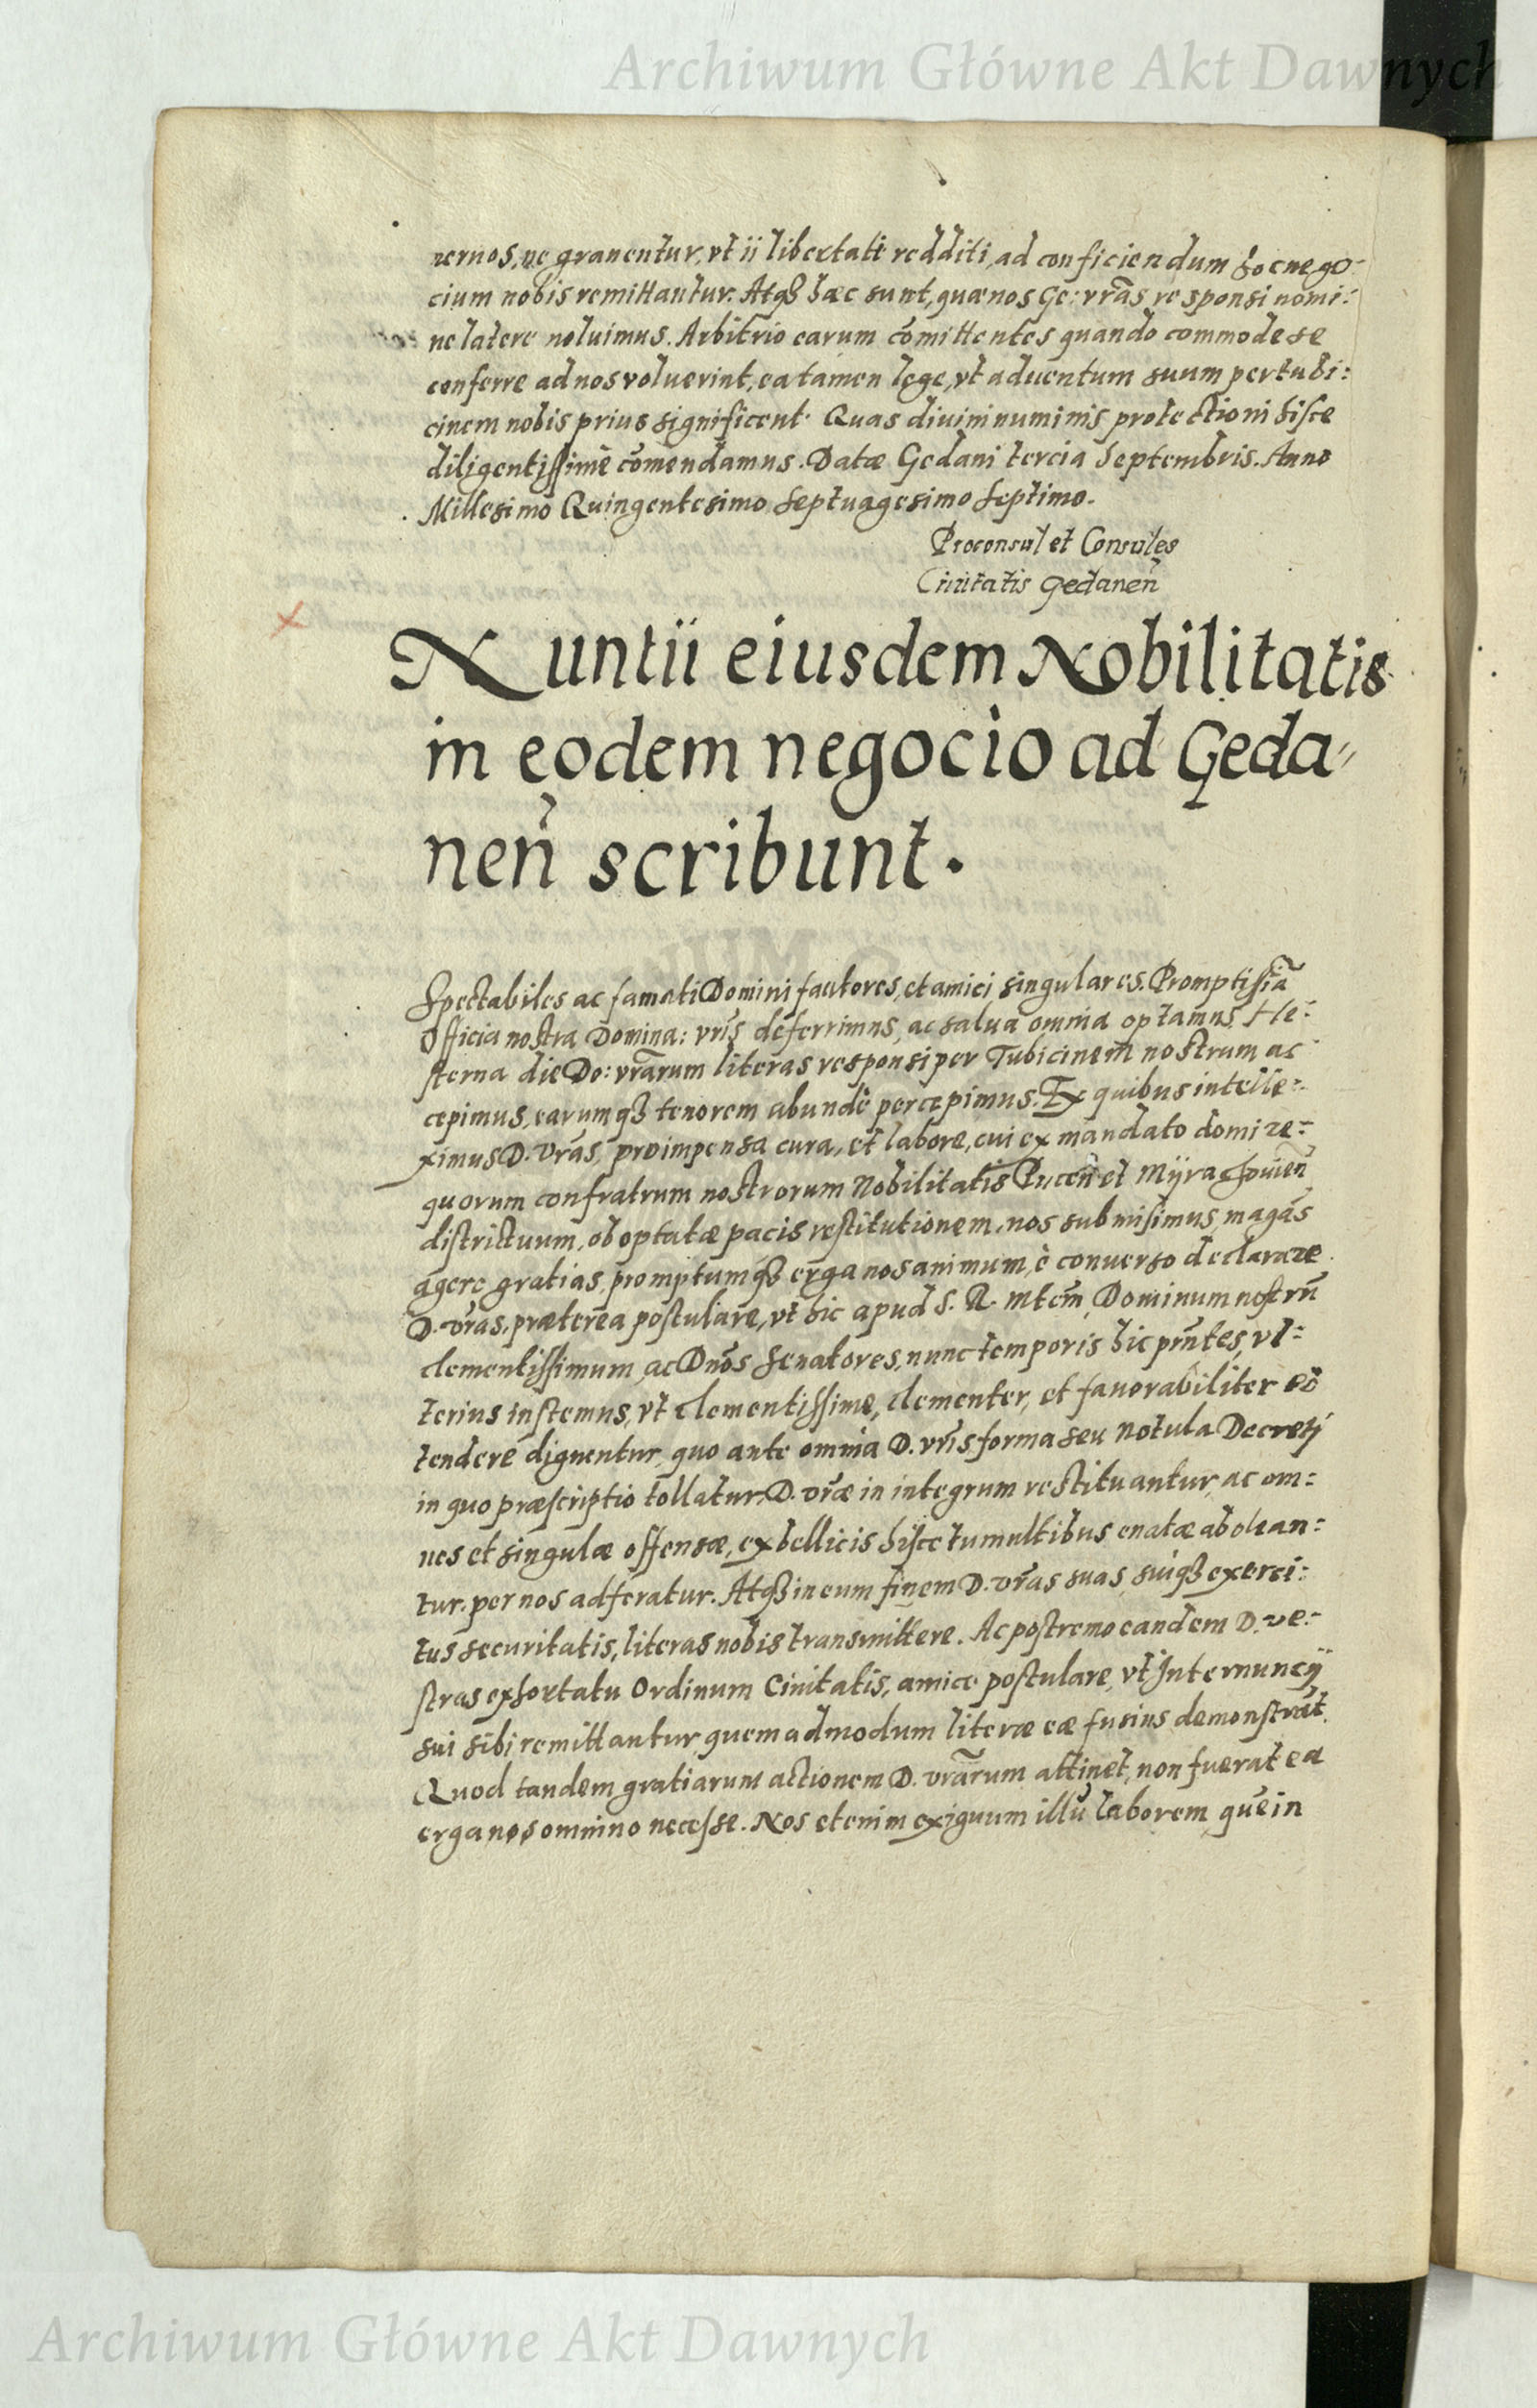 Archiwum Główne Akt Dawnych
uernos, ne grauentur, vt ii libertati redditi, ad conficiendum hoc nego-
cium nobis remittantur. Atq₃ hæc sunt, quæ nos Ge: vrãs responsi nomi:
ne latere noluimus. Arbitrio earum cõmittentes quando commode se
conferre ad nos voluerint, ea tamen lege, vt aduentum suum per tubi:
cinem nobis prius significent. Quas diuini numinis protectioni hisce
diligentissimè cõmendamus. Datæ Gedani tercia Septembris. Anno
Millesimo Quingentesimo Septuagesimo Septimo.
Proconsul et Consules
Ciuitatis Gedanen̄
Nuntii eiusdem Nobilitatis
in eodem negocio ad Geda-
nen̄ scribunt.
Spectabiles ac famati Domini fautores, et amici singulares. Promptissiã
Officia nostra Domina: vrĩs deferrimus, ac salua omnia optamus. He:
sterna die Do: vrãrum literas responsi per Tubicinem nostrum ac
cepimus, earumq₃ tenorem abundè percepimus. Ex quibus intelle:
ximus D. Vrãs, pro impensa cura, et labore, cui ex mandato domi re:
quorum confratrum nostrorum Nobilitatis Pucen̄ et Mijrachouien̄
districtuum, ob optatæ pacis restitutionem, nos submisimus, magãs
agere gratias, promptumq₃ erga nos animum, è conuerso declarare
D. vrãs, præterea postulare, vt hic apud S. R. mtem̃, Dominum nostrũ
clementissimum, ac Dnõs Senatores, nunc temporis hic prñtes, vl:
terius instemus, vt clementissime, clementer, et fauorabiliter eò
tendere dignentur, quo ante omnia D. vrĩs forma seu notula Decretj
in quo præscriptio tollatur, D. vrãe in integrum restituantur, ac om:
nes et singulæ offensæ, ex bellicis hisce tumultibus enatæ abolean:
tur. per nos adferatur. Atq₃ in eum finem D. vrãs suas, suiq₃ exerci:
tus securitatis, literas nobis transmittere. Ac postremo eandem D. ve:
stras exhortatu Ordinum Ciuitatis, amice postulare, vt Internuncij
sui sibi remittantur quemadmodum literæ eæ fusius demonstrãt.
Quod tandem gratiarum actionem D. vrãrum attinet, non fuerat ea
erga nos omnino necesse. Nos etenim exiguum illũ laborem quẽ in
Archiwum Główne Akt Dawnych